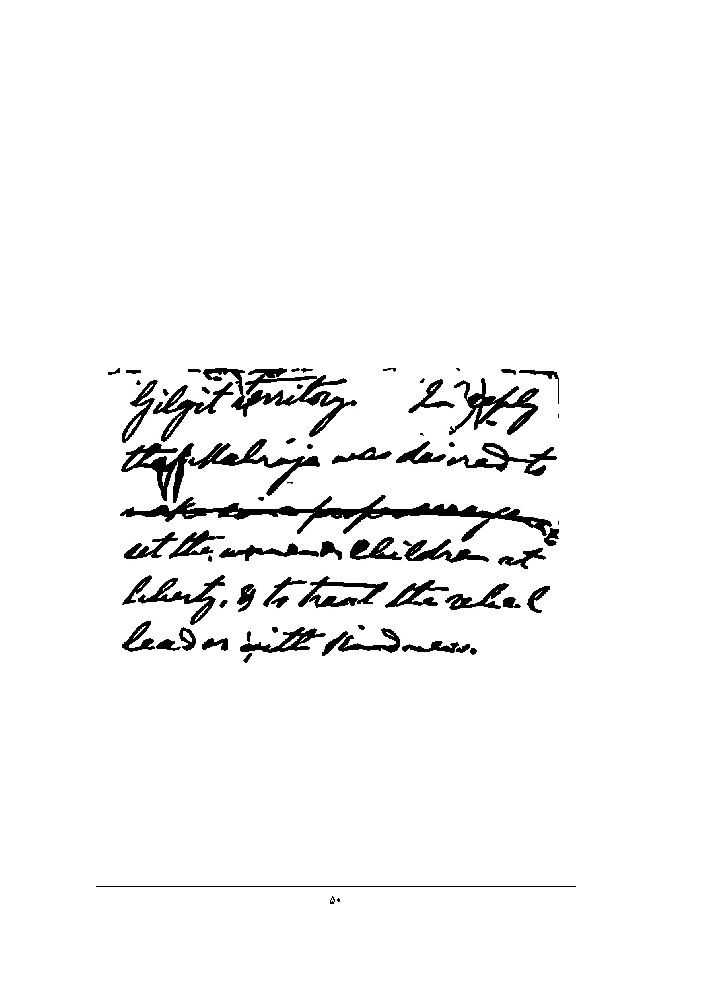 Gilgit territory. In reply
the Mahraja was desired to
set the women & Children at
liberty, & to treat the rebel
leader with kindness.
۵۰